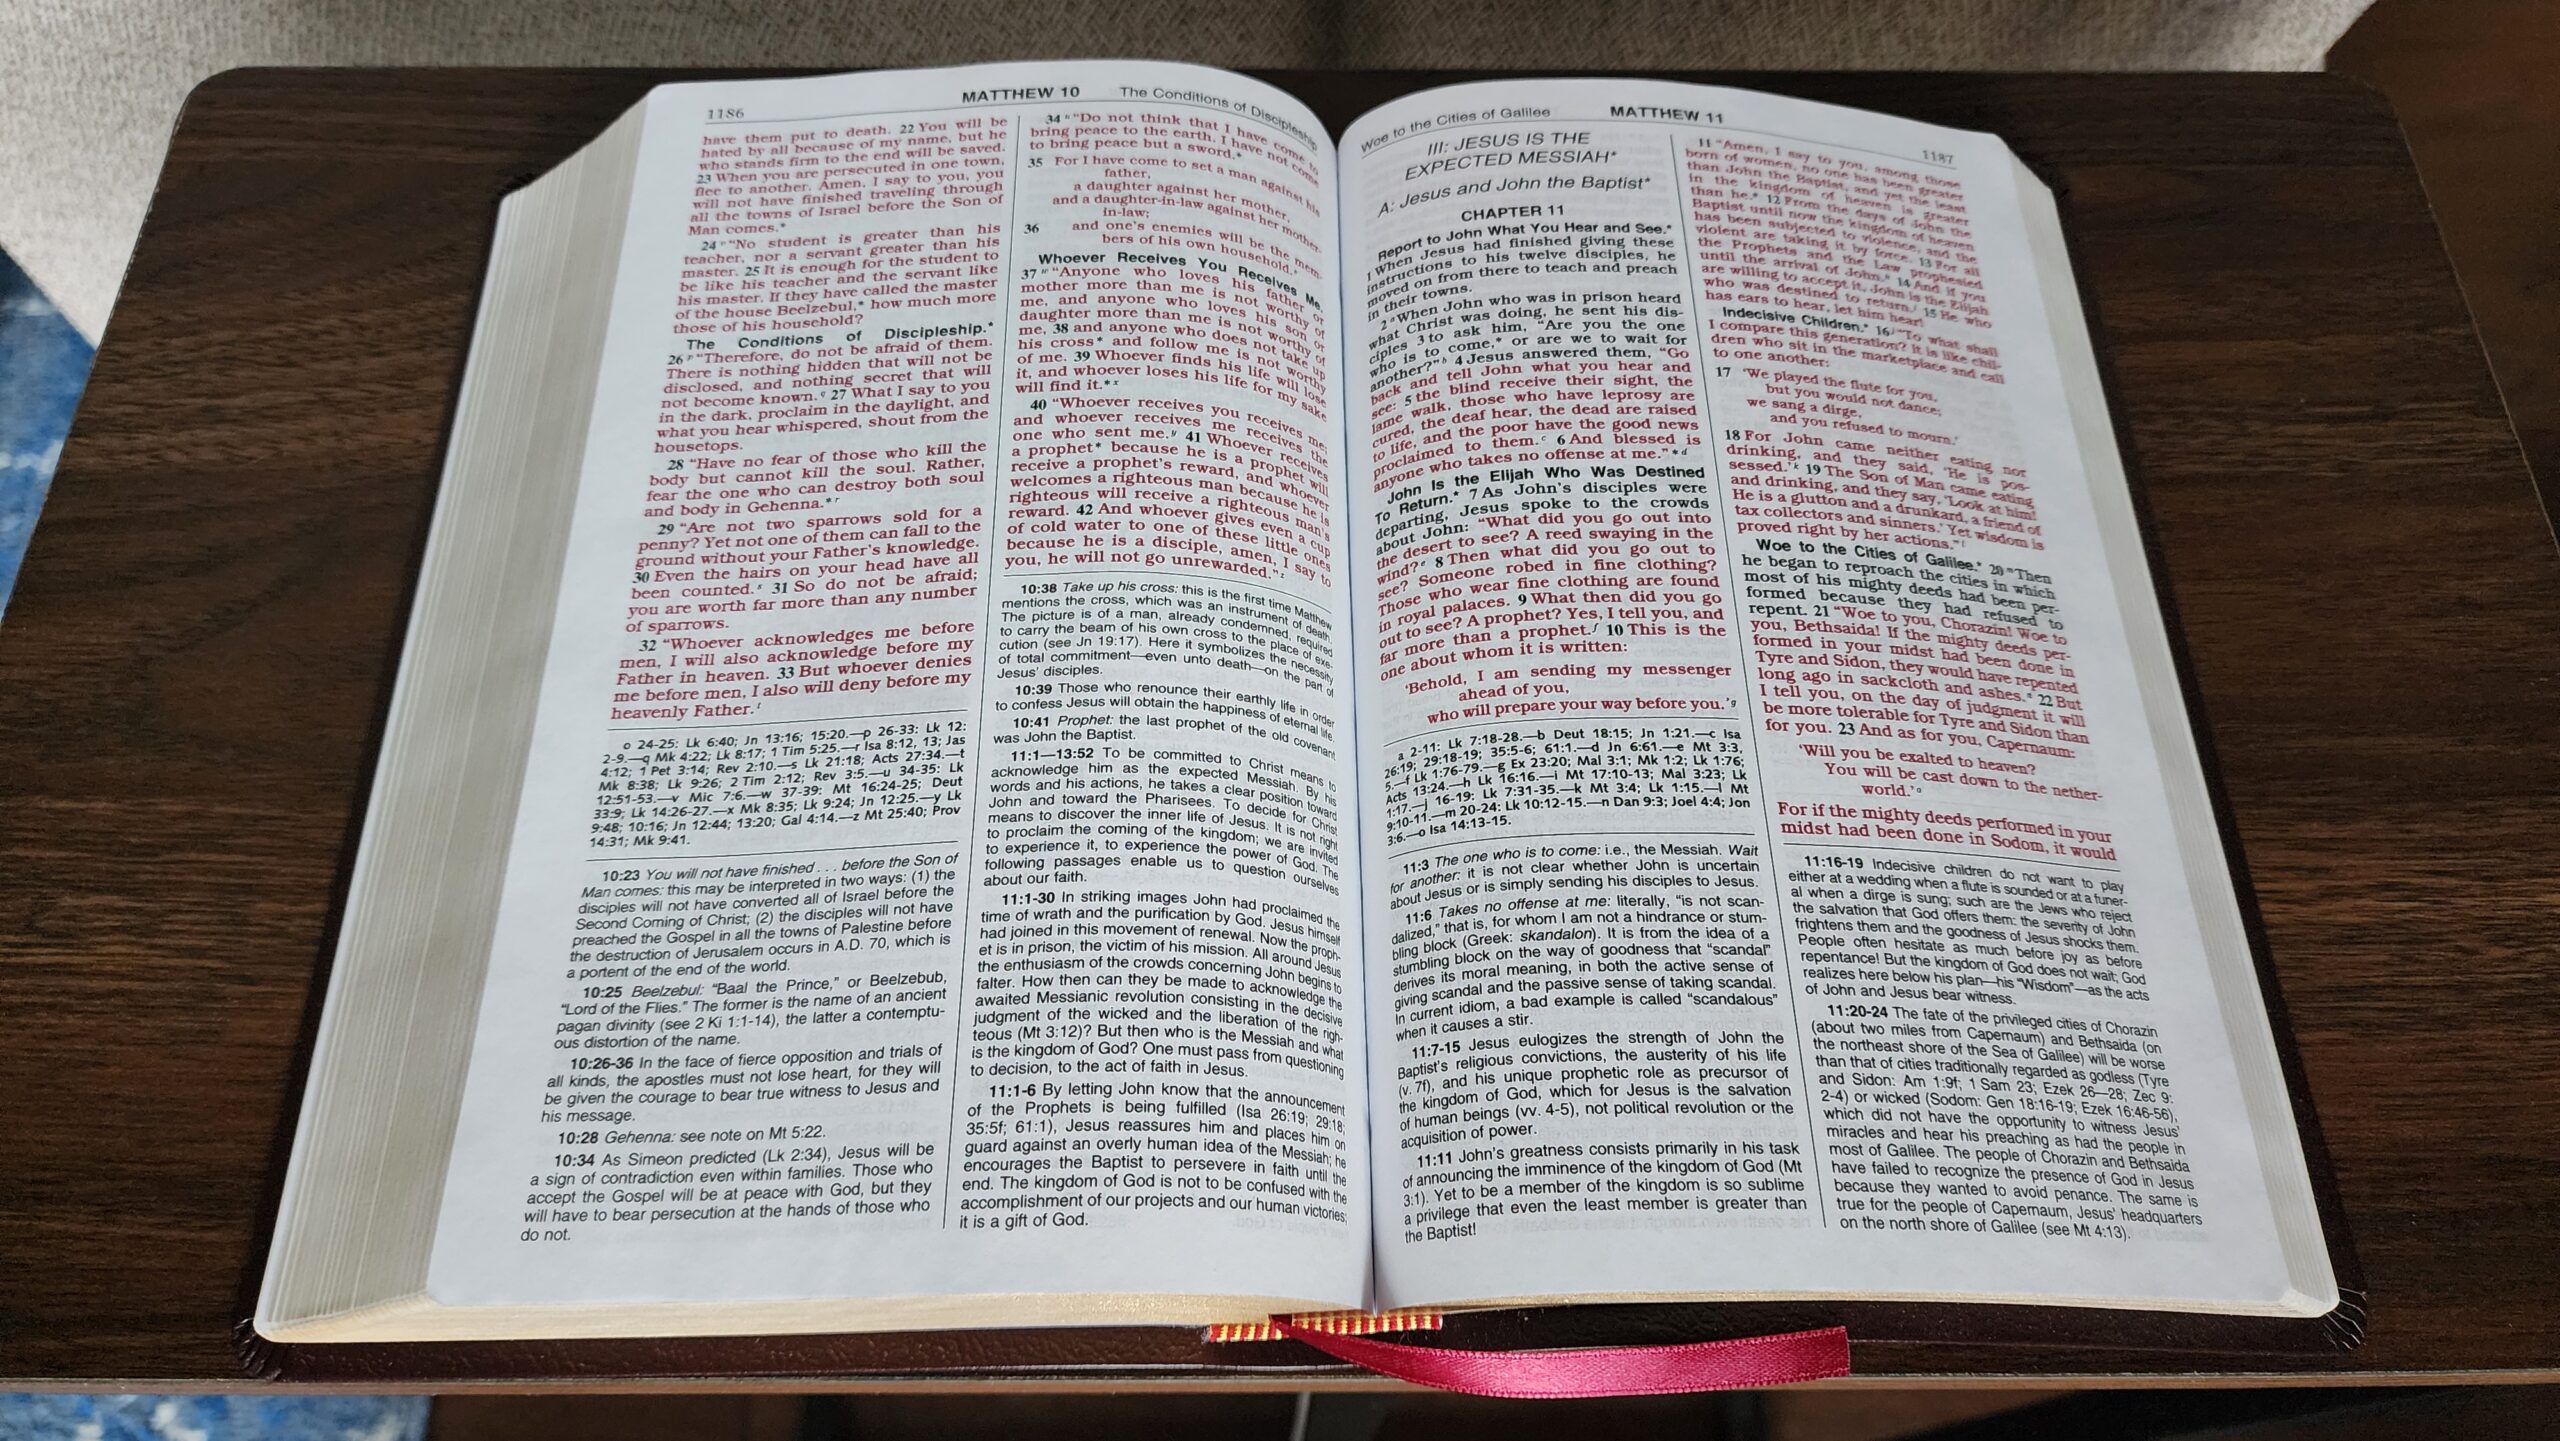 1186
MATTHEW 10
The Conditions of Discipleship
have them put to death. 22 You will be
hated by all because of my name, but he
who stands firm to the end will be saved.
23 When you are persecuted in one town,
flee to another. Amen, I say to you, you
will not have finished traveling through
all the towns of Israel before the Son of
Man comes.*
24 o "No student is greater than his
teacher, nor a servant greater than his
master. 25 It is enough for the student to
be like his teacher and the servant like
his master. If they have called the master
of the house Beelzebul,* how much more
those of his household?
The Conditions of Discipleship.*
26 p "Therefore, do not be afraid of them.
There is nothing hidden that will not be
disclosed, and nothing secret that will
not become known. q 27 What I say to you
in the dark, proclaim in the daylight, and
what you hear whispered, shout from the
housetops.
28 "Have no fear of those who kill the
body but cannot kill the soul. Rather,
fear the one who can destroy both soul
and body in Gehenna.* r
29 "Are not two sparrows sold for a
penny? Yet not one of them can fall to the
ground without your Father's knowledge.
30 Even the hairs on your head have all
been counted. s 31 So do not be afraid;
you are worth far more than any number
of sparrows.
32 "Whoever acknowledges me before
men, I will also acknowledge before my
Father in heaven. 33 But whoever denies
me before men, I also will deny before my
heavenly Father. t
o 24-25: Lk 6:40; Jn 13:16; 15:20.—p 26-33: Lk 12:
2-9.—q Mk 4:22; Lk 8:17; 1 Tim 5:25.—r Isa 8:12, 13; Jas
4:12; 1 Pet 3:14; Rev 2:10.—s Lk 21:18; Acts 27:34.—t
Mk 8:38; Lk 9:26; 2 Tim 2:12; Rev 3:5.—u 34-35: Lk
12:51-53.—v Mic 7:6.—w 37-39: Mt 16:24-25; Deut
33:9; Lk 14:26-27.—x Mk 8:35; Lk 9:24; Jn 12:25.—y Lk
9:48; 10:16; Jn 12:44; 13:20; Gal 4:14.—z Mt 25:40; Prov
14:31; Mk 9:41.
10:23 You will not have finished . . . before the Son of
Man comes: this may be interpreted in two ways: (1) the
disciples will not have converted all of Israel before the
Second Coming of Christ; (2) the disciples will not have
preached the Gospel in all the towns of Palestine before
the destruction of Jerusalem occurs in A.D. 70, which is
a portent of the end of the world.
10:25 Beelzebul: "Baal the Prince," or Beelzebub,
"Lord of the Flies." The former is the name of an ancient
pagan divinity (see 2 Ki 1:1-14), the latter a contemptu-
ous distortion of the name.
10:26-36 In the face of fierce opposition and trials of
all kinds, the apostles must not lose heart, for they will
be given the courage to bear true witness to Jesus and
his message.
10:28 Gehenna: see note on Mt 5:22.
10:34 As Simeon predicted (Lk 2:34), Jesus will be
a sign of contradiction even within families. Those who
accept the Gospel will be at peace with God, but they
will have to bear persecution at the hands of those who
do not.
34 u "Do not think that I have come to
bring peace to the earth. I have not come
to bring peace but a sword.*
35 For I have come to set a man against his
father,
a daughter against her mother,
and a daughter-in-law against her mother-
in-law;
36 and one's enemies will be the mem-
bers of his own household. v
Whoever Receives You Receives Me.
37 w "Anyone who loves his father or
mother more than me is not worthy of
me, and anyone who loves his son or
daughter more than me is not worthy of
me, 38 and anyone who does not take up
his cross* and follow me is not worthy
of me. 39 Whoever finds his life will lose
it, and whoever loses his life for my sake
will find it.* x
40 "Whoever receives you receives me,
and whoever receives me receives the
one who sent me. y 41 Whoever receives
a prophet* because he is a prophet will
receive a prophet's reward, and whoever
welcomes a righteous man because he is
righteous will receive a righteous man's
reward. 42 And whoever gives even a cup
of cold water to one of these little ones
because he is a disciple, amen, I say to
you, he will not go unrewarded." z
10:38 Take up his cross: this is the first time Matthew
mentions the cross, which was an instrument of death.
The picture is of a man, already condemned, required
to carry the beam of his own cross to the place of exe-
cution (see Jn 19:17). Here it symbolizes the necessity
of total commitment—even unto death—on the part of
Jesus' disciples.
10:39 Those who renounce their earthly life in order
to confess Jesus will obtain the happiness of eternal life.
10:41 Prophet: the last prophet of the old covenant
was John the Baptist.
11:1—13:52 To be committed to Christ means to
acknowledge him as the expected Messiah. By his
words and his actions, he takes a clear position toward
John and toward the Pharisees. To decide for Christ
means to discover the inner life of Jesus. It is not right
to proclaim the coming of the kingdom; we are invited
to experience it, to experience the power of God. The
following passages enable us to question ourselves
about our faith.
11:1-30 In striking images John had proclaimed the
time of wrath and the purification by God. Jesus himself
had joined in this movement of renewal. Now the proph-
et is in prison, the victim of his mission. All around Jesus
the enthusiasm of the crowds concerning John begins to
falter. How then can they be made to acknowledge the
awaited Messianic revolution consisting in the decisive
judgment of the wicked and the liberation of the righ-
teous (Mt 3:12)? But then who is the Messiah and what
is the kingdom of God? One must pass from questioning
to decision, to the act of faith in Jesus.
11:1-6 By letting John know that the announcement
of the Prophets is being fulfilled (Isa 26:19; 29:18;
35:5f; 61:1), Jesus reassures him and places him on
guard against an overly human idea of the Messiah; he
encourages the Baptist to persevere in faith until the
end. The kingdom of God is not to be confused with the
accomplishment of our projects and our human victories;
it is a gift of God.
Woe to the Cities of Galilee
MATTHEW 11
1187
III: JESUS IS THE
EXPECTED MESSIAH*
A: Jesus and John the Baptist*
CHAPTER 11
Report to John What You Hear and See.*
1 When Jesus had finished giving these
instructions to his twelve disciples, he
moved on from there to teach and preach
in their towns.
2 a When John who was in prison heard
what Christ was doing, he sent his dis-
ciples 3 to ask him, "Are you the one
who is to come,* or are we to wait for
another?" b 4 Jesus answered them, "Go
back and tell John what you hear and
see: 5 the blind receive their sight, the
lame walk, those who have leprosy are
cured, the deaf hear, the dead are raised
to life, and the poor have the good news
proclaimed to them. c 6 And blessed is
anyone who takes no offense at me." * d
John Is the Elijah Who Was Destined
To Return.* 7 As John's disciples were
departing, Jesus spoke to the crowds
about John: "What did you go out into
the desert to see? A reed swaying in the
wind? e 8 Then what did you go out to
see? Someone robed in fine clothing?
Those who wear fine clothing are found
in royal palaces. 9 What then did you go
out to see? A prophet? Yes, I tell you, and
far more than a prophet. f 10 This is the
one about whom it is written:
'Behold, I am sending my messenger
ahead of you,
who will prepare your way before you.' g
a 2-11: Lk 7:18-28.—b Deut 18:15; Jn 1:21.—c Isa
26:19; 29:18-19; 35:5-6; 61:1.—d Jn 6:61.—e Mt 3:3,
5.—f Lk 1:76-79.—g Ex 23:20; Mal 3:1; Mk 1:2; Lk 1:76;
Acts 13:24.—h Lk 16:16.—i Mt 17:10-13; Mal 3:23; Lk
1:17.—j 16-19: Lk 7:31-35.—k Mt 3:4; Lk 1:15.—l Mt
9:10-11.—m 20-24: Lk 10:12-15.—n Dan 9:3; Joel 4:4; Jon
3:6.—o Isa 14:13-15.
11:3 The one who is to come: i.e., the Messiah. Wait
for another: it is not clear whether John is uncertain
about Jesus or is simply sending his disciples to Jesus.
11:6 Takes no offense at me: literally, "is not scan-
dalized," that is, for whom I am not a hindrance or stum-
bling block (Greek: skandalon). It is from the idea of a
stumbling block on the way of goodness that "scandal"
derives its moral meaning, in both the active sense of
giving scandal and the passive sense of taking scandal.
In current idiom, a bad example is called "scandalous"
when it causes a stir.
11:7-15 Jesus eulogizes the strength of John the
Baptist's religious convictions, the austerity of his life
(v. 7f), and his unique prophetic role as precursor of
the kingdom of God, which for Jesus is the salvation
of human beings (vv. 4-5), not political revolution or the
acquisition of power.
11:11 John's greatness consists primarily in his task
of announcing the imminence of the kingdom of God (Mt
3:1). Yet to be a member of the kingdom is so sublime
a privilege that even the least member is greater than
the Baptist!
11 "Amen, I say to you, among those
born of women, no one has been greater
than John the Baptist, and yet the least
in the kingdom of heaven is greater
than he.* 12 From the days of John the
Baptist until now the kingdom of heaven
has been subjected to violence, and the
violent are taking it by force. 13 For all
the Prophets and the Law prophesied
until the arrival of John. h 14 And if you
are willing to accept it, John is the Elijah
who was destined to return. i 15 He who
has ears to hear, let him hear!
Indecisive Children.* 16 j "To what shall
I compare this generation? It is like chil-
dren who sit in the marketplace and call
to one another:
17 'We played the flute for you,
but you would not dance;
we sang a dirge,
and you refused to mourn.'
18 For John came neither eating nor
drinking, and they said, 'He is pos-
sessed.' k 19 The Son of Man came eating
and drinking, and they say, 'Look at him!
He is a glutton and a drunkard, a friend of
tax collectors and sinners.' Yet wisdom is
proved right by her actions." l
Woe to the Cities of Galilee.* 20 m Then
he began to reproach the cities in which
most of his mighty deeds had been per-
formed because they had refused to
repent. 21 "Woe to you, Chorazin! Woe to
you, Bethsaida! If the mighty deeds per-
formed in your midst had been done in
Tyre and Sidon, they would have repented
long ago in sackcloth and ashes. n 22 But
I tell you, on the day of judgment it will
be more tolerable for Tyre and Sidon than
for you. 23 And as for you, Capernaum:
'Will you be exalted to heaven?
You will be cast down to the nether-
world.' o
For if the mighty deeds performed in your
midst had been done in Sodom, it would
11:16-19 Indecisive children do not want to play
either at a wedding when a flute is sounded or at a funer-
al when a dirge is sung; such are the Jews who reject
the salvation that God offers them: the severity of John
frightens them and the goodness of Jesus shocks them.
People often hesitate as much before joy as before
repentance! But the kingdom of God does not wait; God
realizes here below his plan—his "Wisdom"—as the acts
of John and Jesus bear witness.
11:20-24 The fate of the privileged cities of Chorazin
(about two miles from Capernaum) and Bethsaida (on
the northeast shore of the Sea of Galilee) will be worse
than that of cities traditionally regarded as godless (Tyre
and Sidon: Am 1:9f; 1 Sam 23; Ezek 26—28; Zec 9:
2-4) or wicked (Sodom: Gen 18:16-19; Ezek 16:46-56),
which did not have the opportunity to witness Jesus'
miracles and hear his preaching as had the people in
most of Galilee. The people of Chorazin and Bethsaida
have failed to recognize the presence of God in Jesus
because they wanted to avoid penance. The same is
true for the people of Capernaum, Jesus' headquarters
on the north shore of Galilee (see Mt 4:13).